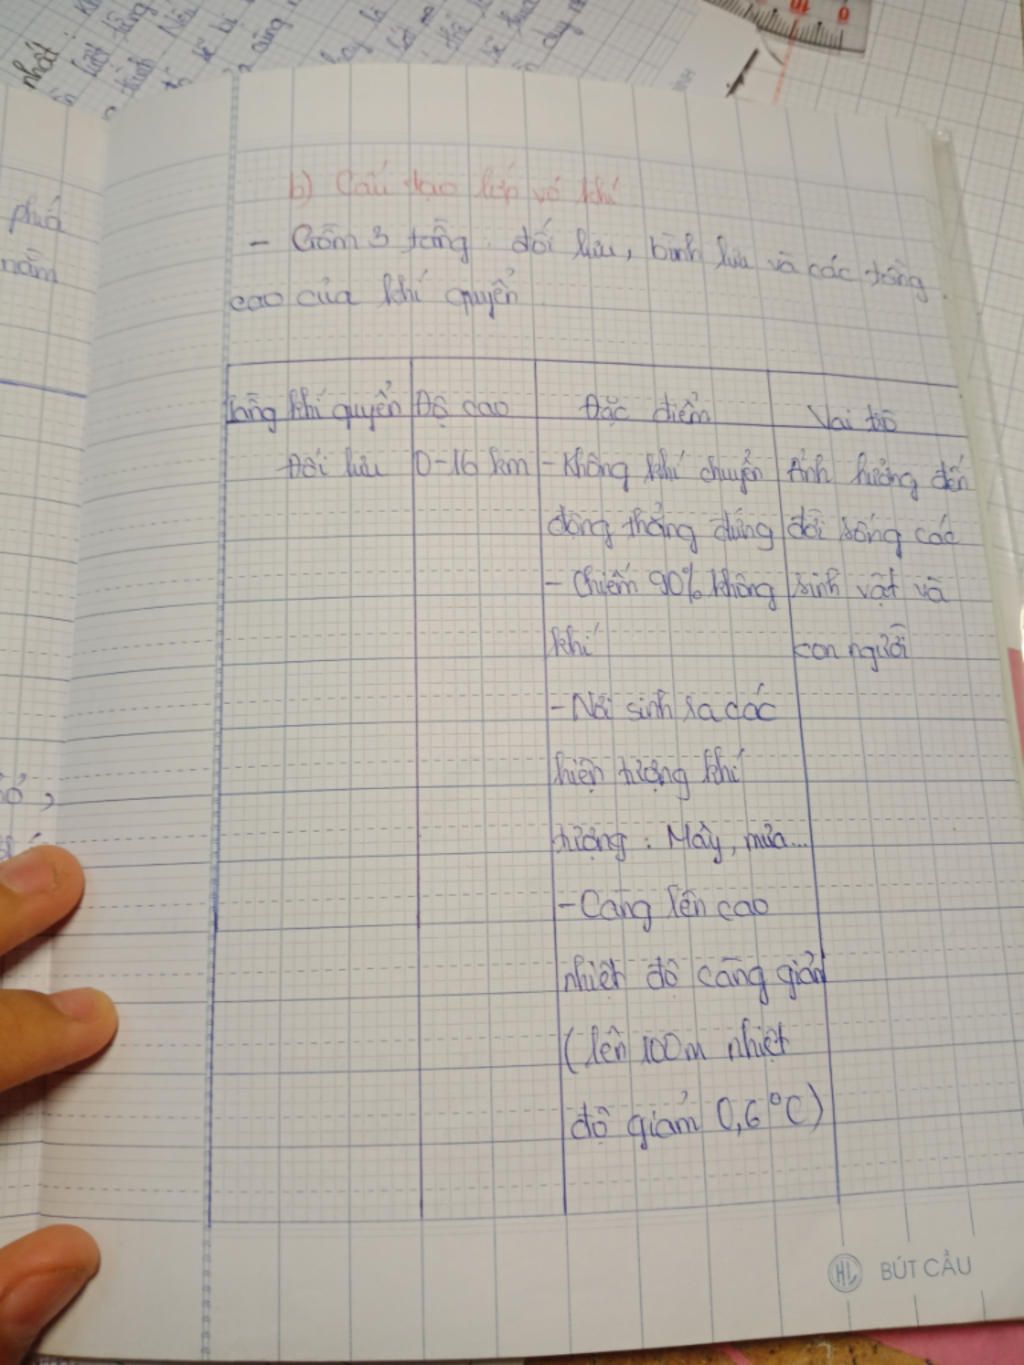 b) Cấu tạo lớp vỏ khí
- Gồm 3 tầng: đối lưu, bình lưu và các tầng
cao của khí quyển
Tầng khí quyển Độ cao Đặc điểm Vai trò
Đối lưu 0-16 km - Không khí chuyển Ảnh hưởng đến
động thẳng đứng đời sống các
- Chiếm 90% không sinh vật và
khí con người
- Nơi sinh ra các
hiện tượng khí
tượng: Mây, mưa...
- Càng lên cao
nhiệt độ càng giản
(lên 100m nhiệt
độ giảm 0,6°C)
HL BÚT CẦU
phía
nằm